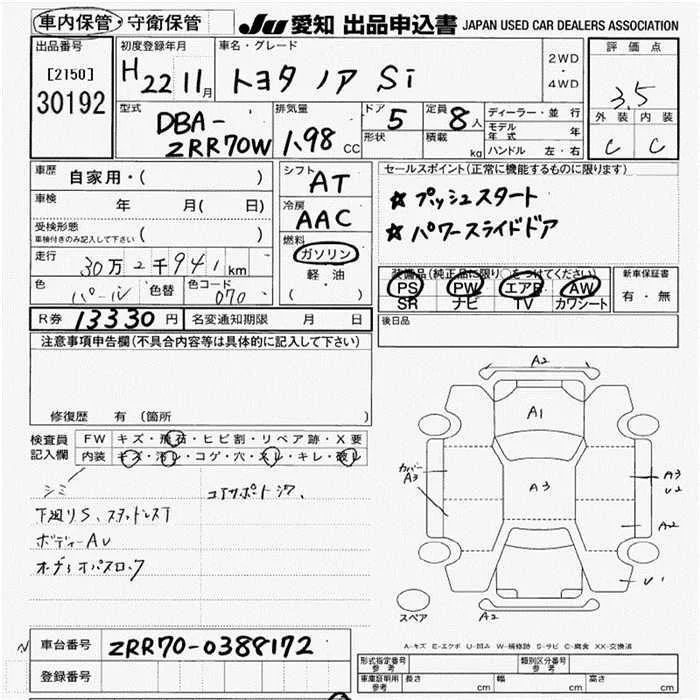 車内保管・守衛保管
JU 愛知 出品申込書 JAPAN USED CAR DEALERS ASSOCIATION
出品番号
[2150]
30192
初度登録年月
H22 11月
車名・グレード
トヨタ ノア Si
2WD
・
4WD
評価点
3.5
外装 内装
C C
型式
DBA-
ZRR70W
排気量
1.98 CC
ドア
5
形状
定員
8人
積載
kg
ディーラー・並行
モデル年式 年
ハンドル 左・右
車歴
自家用・( )
車検 年 月( 日)
受検形態
車検付きのみ記入して下さい ( )
走行
30万2千941km
色
パール
色替
色コード
070
シフト
AT
冷房
AAC
燃料
ガソリン
軽油
( ・ )
セールスポイント(正常に機能するものに限ります)
☆ プッシュスタート
☆ パワースライドドア
装備品(純正品に限り○をつけてください)
PS PW エアB AW
SR ナビ TV カワシート
新車保証書
有・無
R券 13330円
名変通知期限 月 日
後日品
注意事項申告欄(不具合内容等は具体的に記入して下さい)
修復歴 有(箇所 )
検査員
記入欄
FW キズ・飛石・ヒビ割・リペア跡・X要
内装 キズ・汚レ・コゲ・穴・スレ・キレ・破レ
シミ
コアサポートシワ、
下廻りS、スタッドレスT
ボディーAU
オーディオパスロック
A2
A1
A3
カバー
A3
A3
U2
A2
U1
A2
スペア
A-キズ E-エクボ U-凹み W-補修跡 S-サビ C-腐食 XX-交換済
車台番号 ZRR70-0388172
登録番号
形式指定番号
参考
類別区分番号
参考
車庫証明用
参考
長さ cm
幅 cm
高さ cm